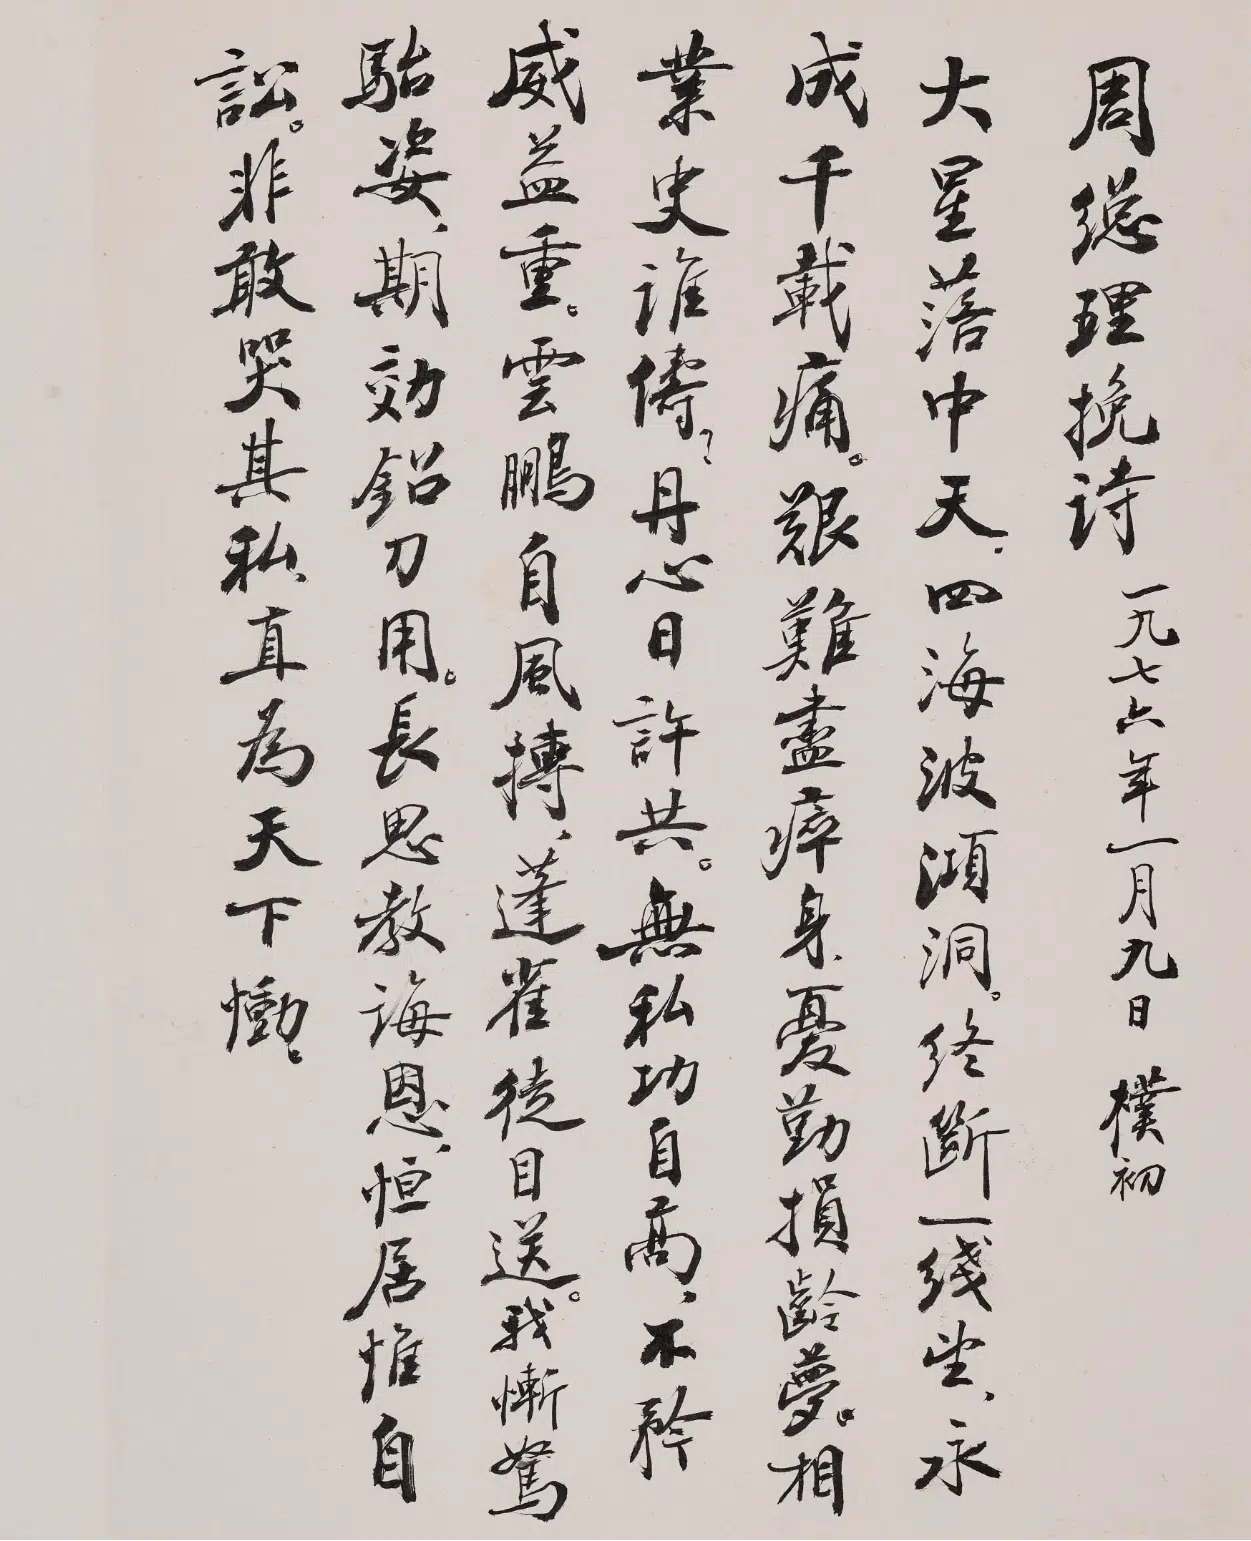 周總理挽诗 一九七六年一月九日 樸初
大星落中天、四海波澒洞。终斷一线望、永
成千載痛。艱難盡瘁身、憂勤損齡夢。相
業史誰儔？丹心日許共。無私功自高、不矜
威益重。雲鵬自風摶、蓬雀徒目送。我慚駑
駘姿、期効鉛刀用。長思教誨恩、恒居惟自
訟。非敢哭其私、直為天下慟。